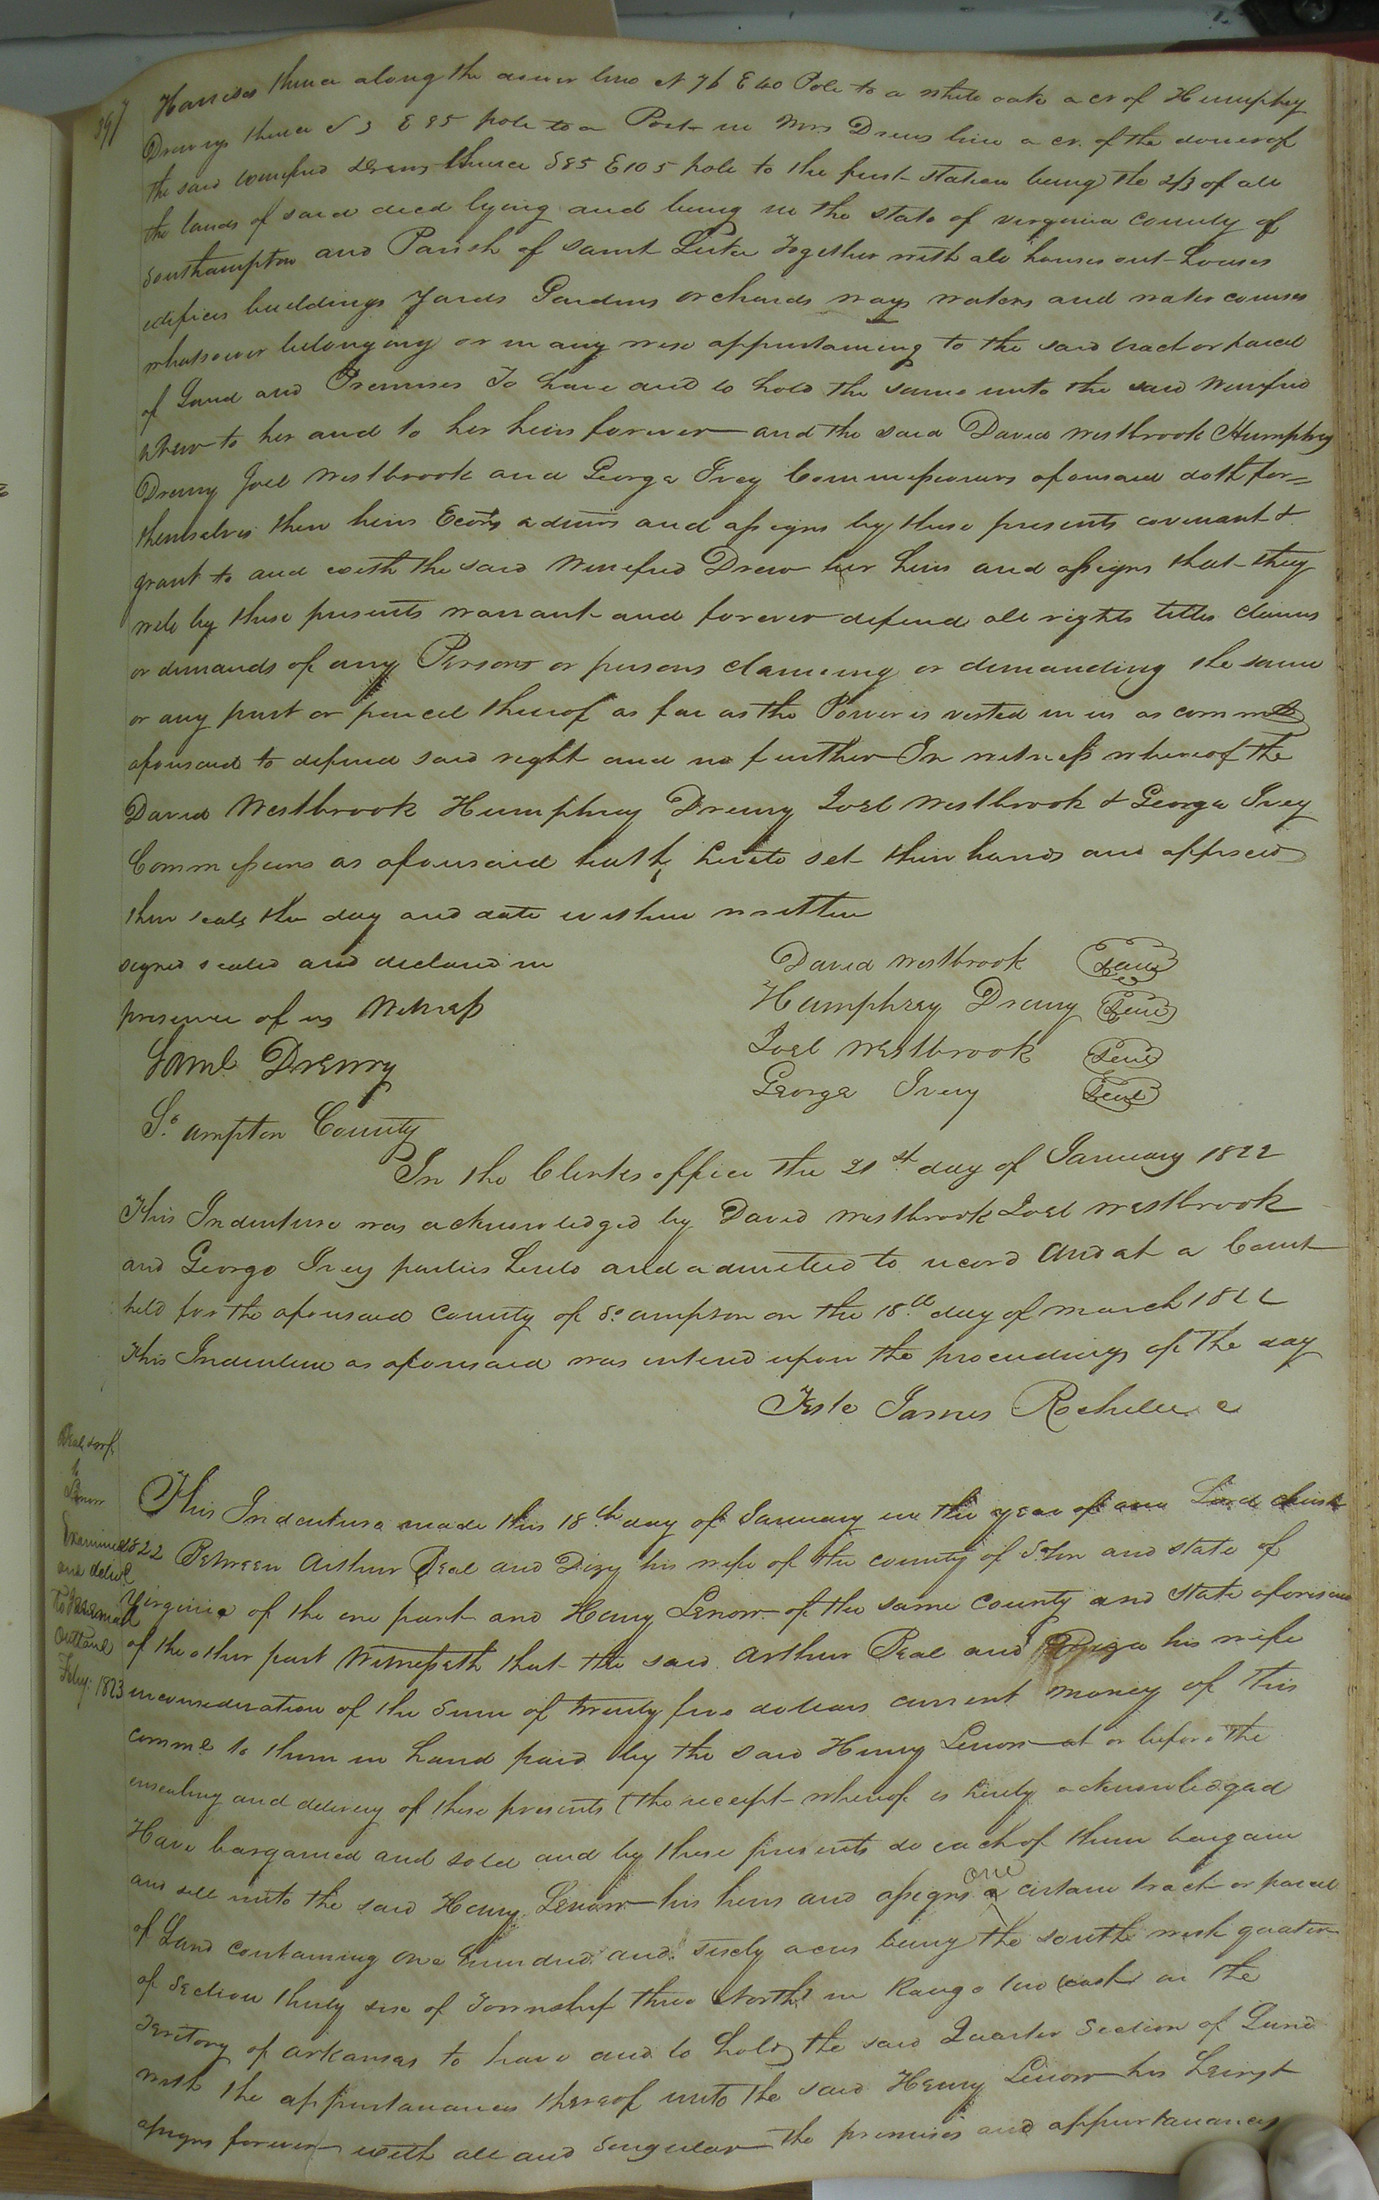 397
Harrises thence along the dower line N 76 E 40 Pole to a white oak a cr of Humphrey
Drewrys thence N 3 E 95 pole to a Post in Mrs Drews line a cr. of the dower of
the said Winefred Drews thence S 85 E 105 pole to the first station being the 2/3 of all
the lands of said decd lying and being in the state of virginia County of
Southampton and Parish of Saint Luke Together with all houses out-houses
edifices buildings Yards Gardens orchards ways waters and water courses
whatsoever belonging or in any wise appurtaining to the said tract or parcel
of Land and Premises To have and to hold the same unto the said Winefred
Drew to her and to her heirs forever and the said David Westbrook Humphrey
Drewry Joel Westbrook and George Ivey Commissioners aforesaid doth for=
themselves their heirs Ecors admrs and assigns by these presents covenant &
grant to and with the said Winefred Drew her heirs and assigns that they
will by these presents warrant and forever defend all rights titles claims
or demands of any Persons or persons claiming or demanding the same
or any part or parcel thereof as far as the Power is vested in us as commrs
aforesaid to defend said right and no further In witness whereof the
David Westbrook Humphrey Drewry Joel Westbrook & George Ivey
Commissioners as aforesaid hath hereto set their hands and affixed
their seals the day and date within written
signed sealed and declared in
presence of us Witness
Saml Drewry
David Westbrook Seal
Humphrey Drewry Seal
Joel Westbrook Seal
George Ivey Seal
So ampton County
In the Clerks office the 21st day of January 1822
This Indenture was acknowledged by David Westbrook Joel Westbrook
and George Ivey parties hereto and admitted to record And at a Court
held for the aforesaid County of So ampton on the 18th day of March 1822
This Indenture as aforesaid was entered upon the proceedings of the day
Teste James Rochelle c
Examined
and delivd
Outland
Feby: 1823
This Indenture made this 18th day of January in the year of our Lord christ
1822 Between Arthur Beal and Dizy his wife of the county of S.ton and state of
Virginia of the one part and Henry Lenow of the same County and State aforesaid
of the other part Witnesseth that the said Arthur Beal and his wife
in consideration of the Sum of twenty five dollars current money of this
comme to them in hand paid by the said Henry Lenow at or before the
ensealing and delivery of these presents (the receipt whereof is hereby acknowledged
Have bargained and sold and by these presents do each of them bargain
and sell unto the said Henry Lenow his heirs and assigns one certain tract or parcel
of Land containing one hundred and sixty acres being the south west quarter
of Section thirty six of Township three North in Range two east in the
Territory of Arkansas to have and to hold the said Quarter Section of Land
with the appurtanances thereof unto the said Henry Lenow his heirs &
assigns forever with all and Singular the premises and appurtanances